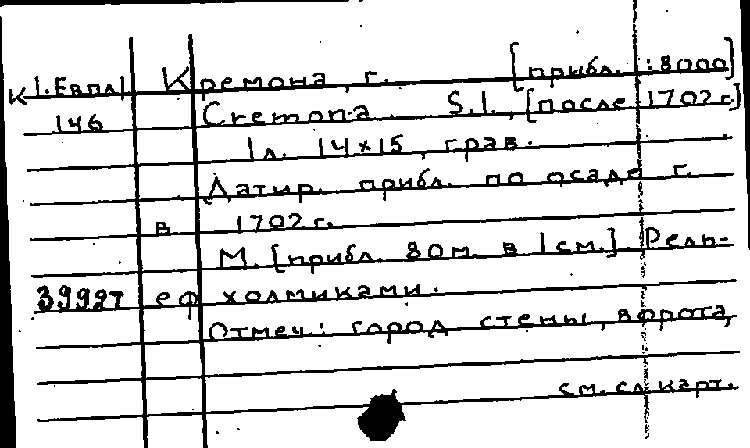 К 1.Евпл Кремона, г. [прибл. 1:8000]
146 Cremona. S.l., [после 1702 г.]
1 л. 14×15, грав.
Датир. прибл. по осаде г.
в 1702 г.
М. [прибл. 80 м. в 1 см.] Рель-
3992т еф холмиками.
Отмеч: город стены, ворота,
см. сл. карт.